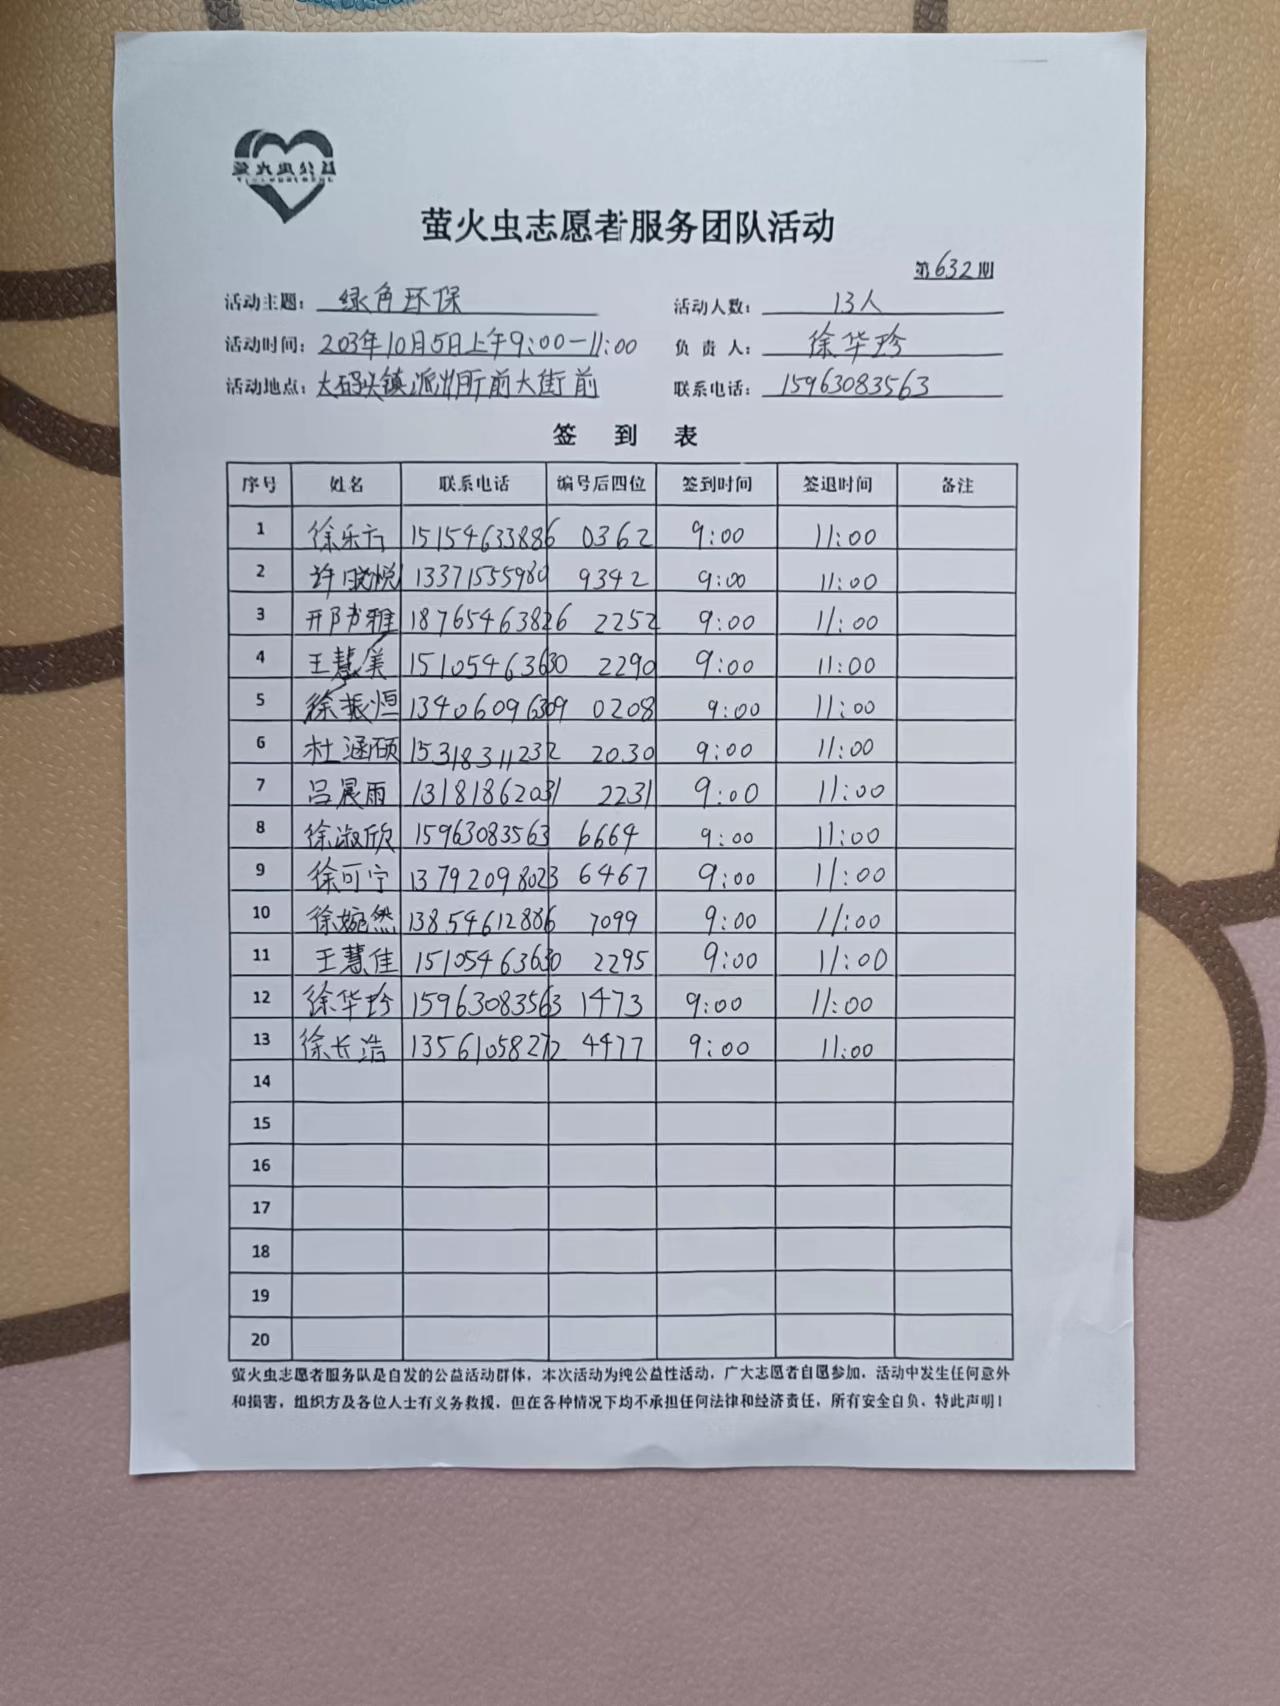 萤火虫公益
萤火虫志愿者服务团队活动
第632期
活动主题： 绿色环保 活动人数： 13人
活动时间： 203年10月5日上午9:00-11:00 负责人： 徐华珍
活动地点： 大码头镇派出所前大街前 联系电话： 15963083563
签 到 表
序号 姓名 联系电话 编号后四位 签到时间 签退时间 备注
1 徐乐 15154633886 0362 9:00 11:00
2 许晓悦 13371555980 9342 9:00 11:00
3 邢书雅 18765463826 2252 9:00 11:00
4 王慧美 15105463630 2290 9:00 11:00
5 徐振恒 13406096309 0208 9:00 11:00
6 杜涵硕 15318311232 2030 9:00 11:00
7 吕晨雨 13181862031 2231 9:00 11:00
8 徐淑欣 15963083563 6664 9:00 11:00
9 徐可宁 13792098023 6467 9:00 11:00
10 徐婉然 13854612886 7099 9:00 11:00
11 王慧佳 15105463630 2295 9:00 11:00
12 徐华珍 15963083563 1473 9:00 11:00
13 徐长浩 13561058272 4477 9:00 11:00
14
15
16
17
18
19
20
萤火虫志愿者服务队是自发的公益活动群体，本次活动为纯公益性活动，广大志愿者自愿参加，活动中发生任何意外
和损害，组织方及各位人士有义务救援，但在各种情况下均不承担任何法律和经济责任，所有安全自负，特此声明！